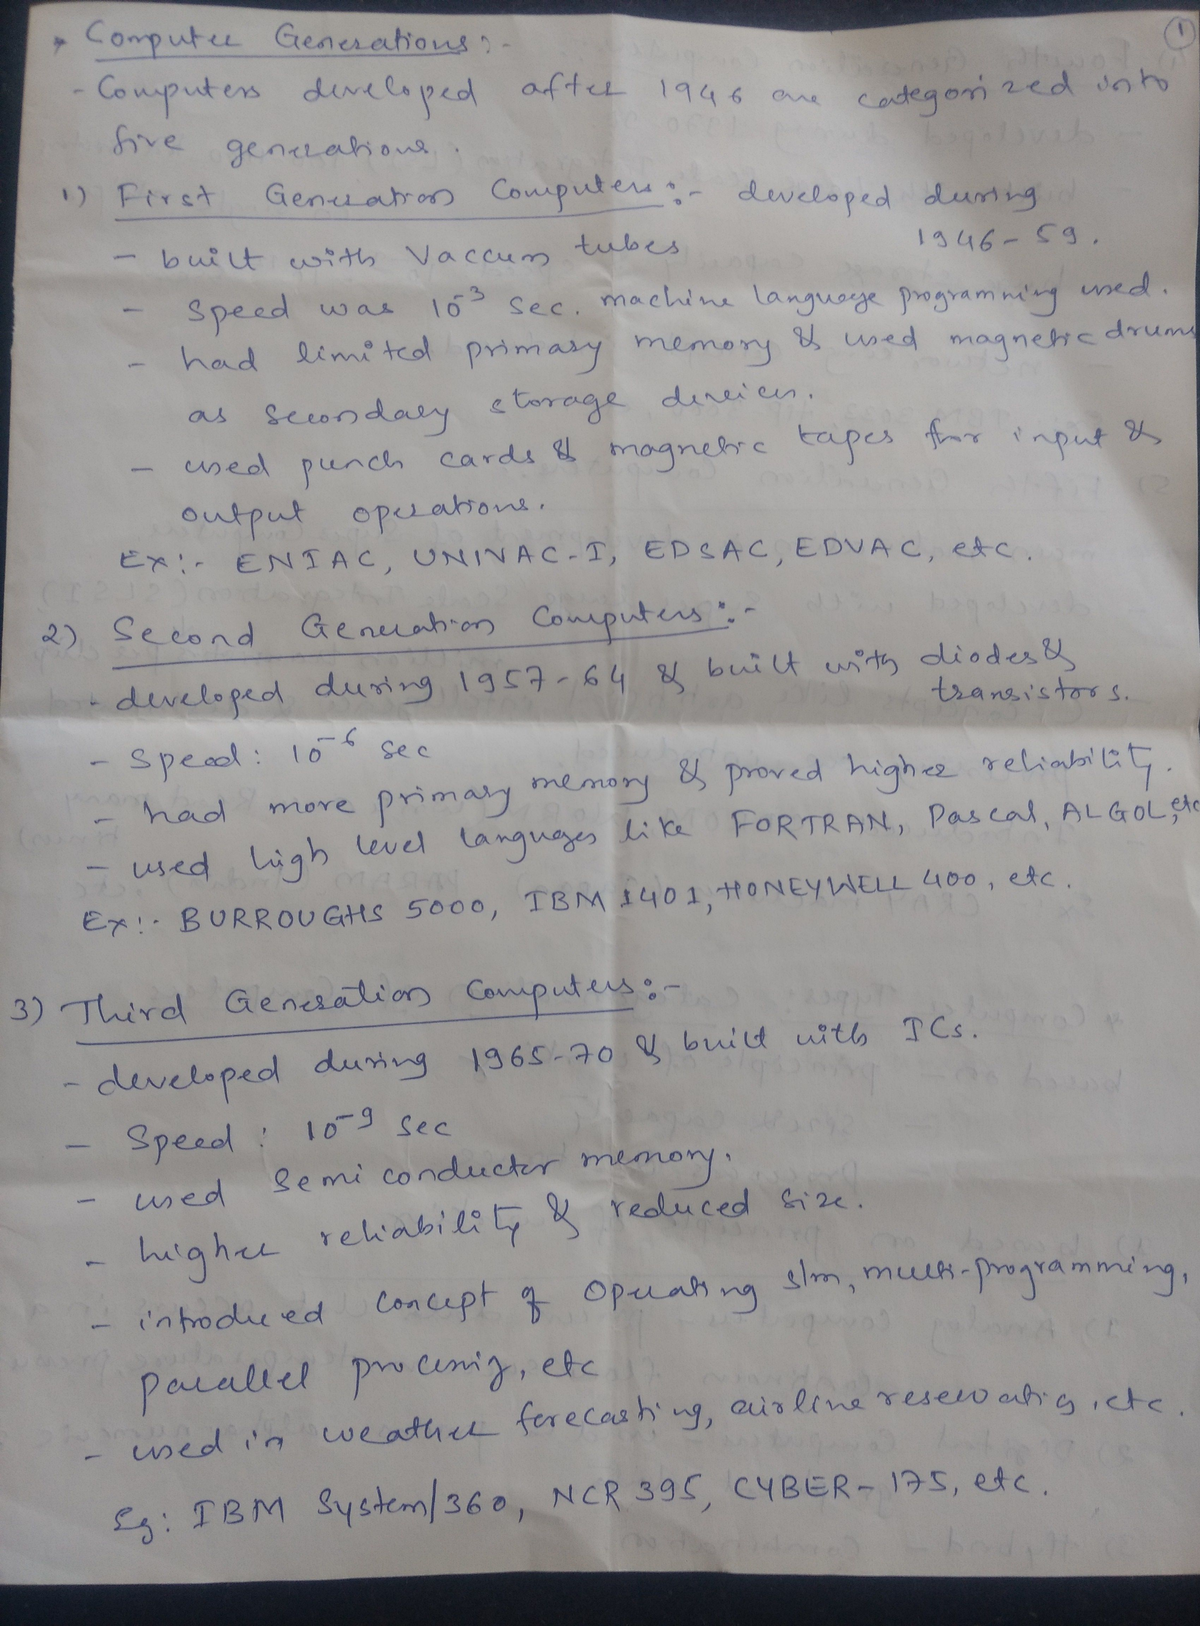 ①
* Computer Generations :-
- Computers developed after 1946 are categorized into
five generations.
1) First Generation Computers :- developed during
1946-59.
- built with Vaccum tubes
- speed was 10⁻³ sec. machine language programming used.
- had limited primary memory & used magnetic drums
as secondary storage devices.
- used punch cards & magnetic tapes for input &
output operations.
Ex:- ENIAC, UNIVAC-I, EDSAC, EDVAC, etc.
2) Second Generation Computers :-
- developed during 1957-64 & built with diodes &
transistors.
- Speed : 10⁻⁶ sec
- had more primary memory & proved higher reliability.
- used high level languages like FORTRAN, Pascal, ALGOL, etc
Ex:- BURROUGHS 5000, IBM 1401, HONEYWELL 400, etc.
3) Third Generation Computers :-
- developed during 1965-70 & built with ICs.
- Speed : 10⁻⁹ sec
- used semi conductor memory.
- higher reliability & reduced size.
- introduced concept of Operating s/m, multi-programming,
parallel processing, etc
- used in weather forecasting, airline reservating, etc.
Eg: IBM System/360, NCR 395, CYBER-175, etc.